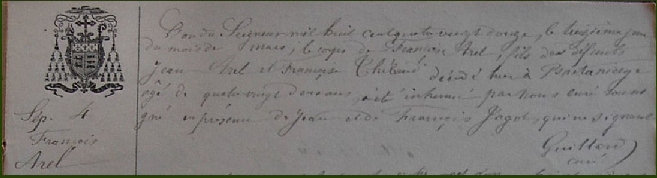 L'an du Seigneur mil huit cent quatre vingt douze, le troisième jour
du mois de mars, le corps de François Arel, fils des défunts
Jean Arel et Françoise Thebaud décédé hier à
agé de quatre vingt deux ans, a été inhumé par nous curé sous
gné en présence de Jean et de François Jagot, qui ne signent
Guittard
curé
Sep. 4
François
Arel